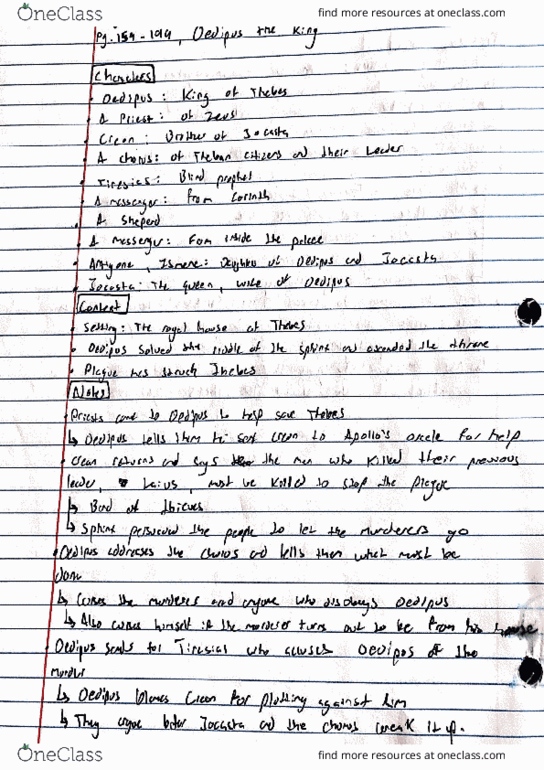 OneClass
find more resources at oneclass.com
Pg. 159 - , Oedipus the King
Characters
• Oedipus: King of Thebes
• A Priest: of Zeus
• Creon: Brother of Jocasta
• A chorus: of Theban citizens and their Leader
• Tiresias: Blind prophet
• A messenger: from Corinth
• A Sheperd
• A messenger: From inside the palace
• Antigone, Ismene: Daughters of Oedipus and Jocasta
• Jocasta: The queen, wife of Oedipus
Context
• Setting: The royal house of Thebes
• Oedipus solved the riddle of the sphinx and ascended the throne
• Plague has struck Thebes
Notes
• Priests come to Oedipus to help save Thebes
↳ Oedipus tells them he sent Creon to Apollo's oracle for help
• Creon returns and says the man who killed their previous
leader, Laius, must be killed to stop the plague
↳ Band of thieves
↳ Sphinx persuaded the people to let the murderers go
• Oedipus addresses the chorus and tells them what must be
done
↳ Curses the murderer and anyone who disobeys Oedipus
↳ Also curses himself if the murderer turns out to be from his house
• Oedipus sends for Tiresias who accuses Oedipus of the
murder
↳ Oedipus blames Creon for plotting against him
↳ They argue before Jocasta and the chorus break it up.
OneClass
find more resources at oneclass.com